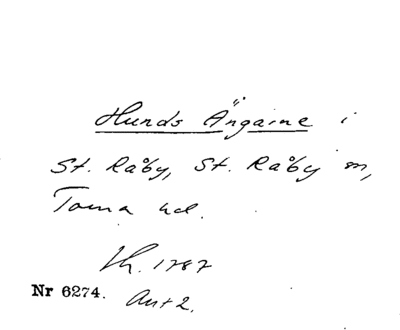 Hunds Ängarne i
St. Råby, St. Råby sn,
Torna hd.
Lh. 1787
Nr 6274. Akt 2.